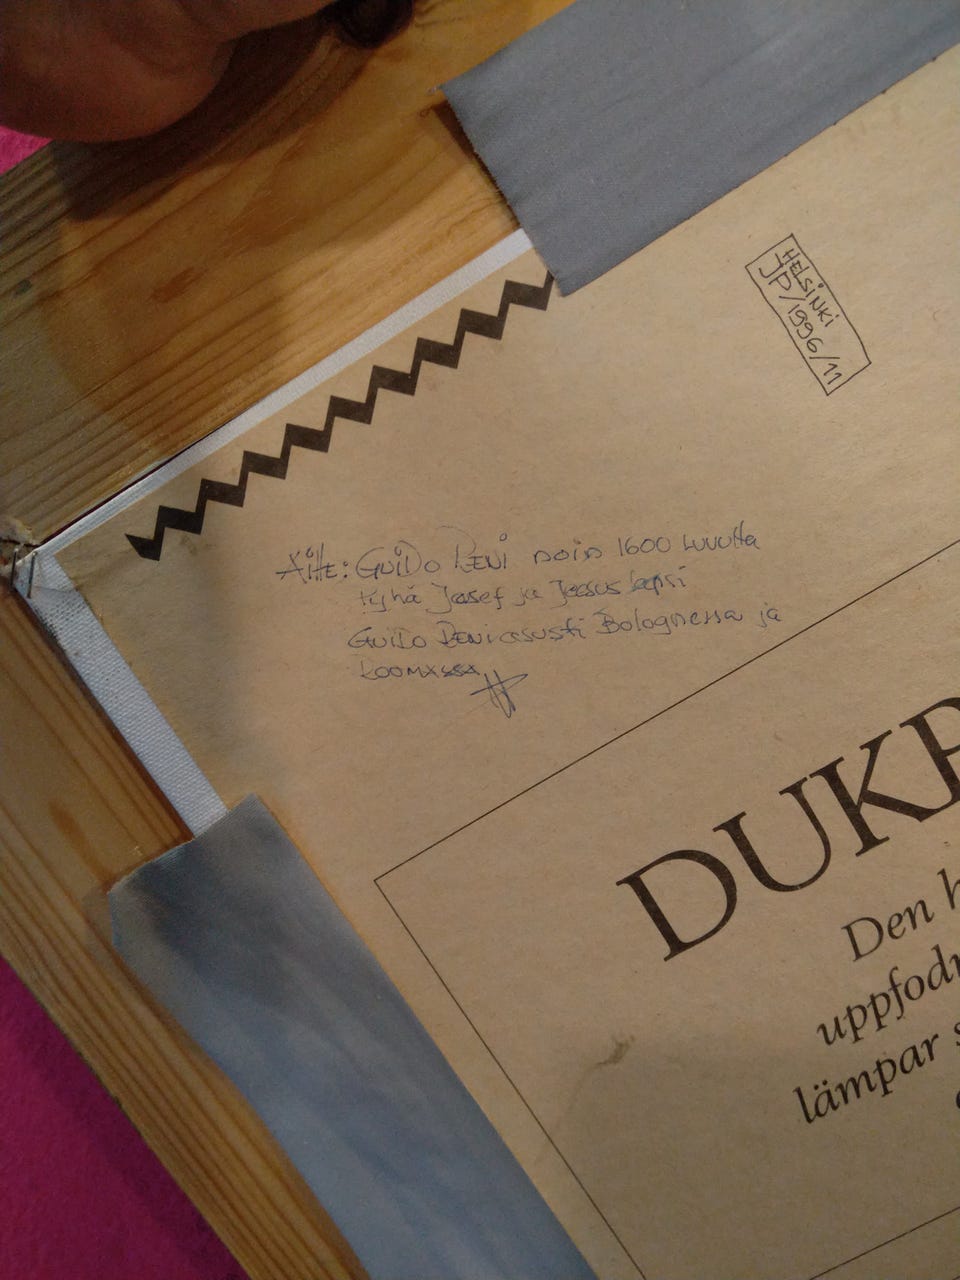 HELSINKI
JP/1996/11
AIHE: GUIDO RENI NOIN 1600 LUVULTA
Pyhä Joosef ja Jeesus lapsi
GUIDO RENI asusti Bolognessa ja
ROOMASSA
DUKP
Den h
uppfod
lämpar s